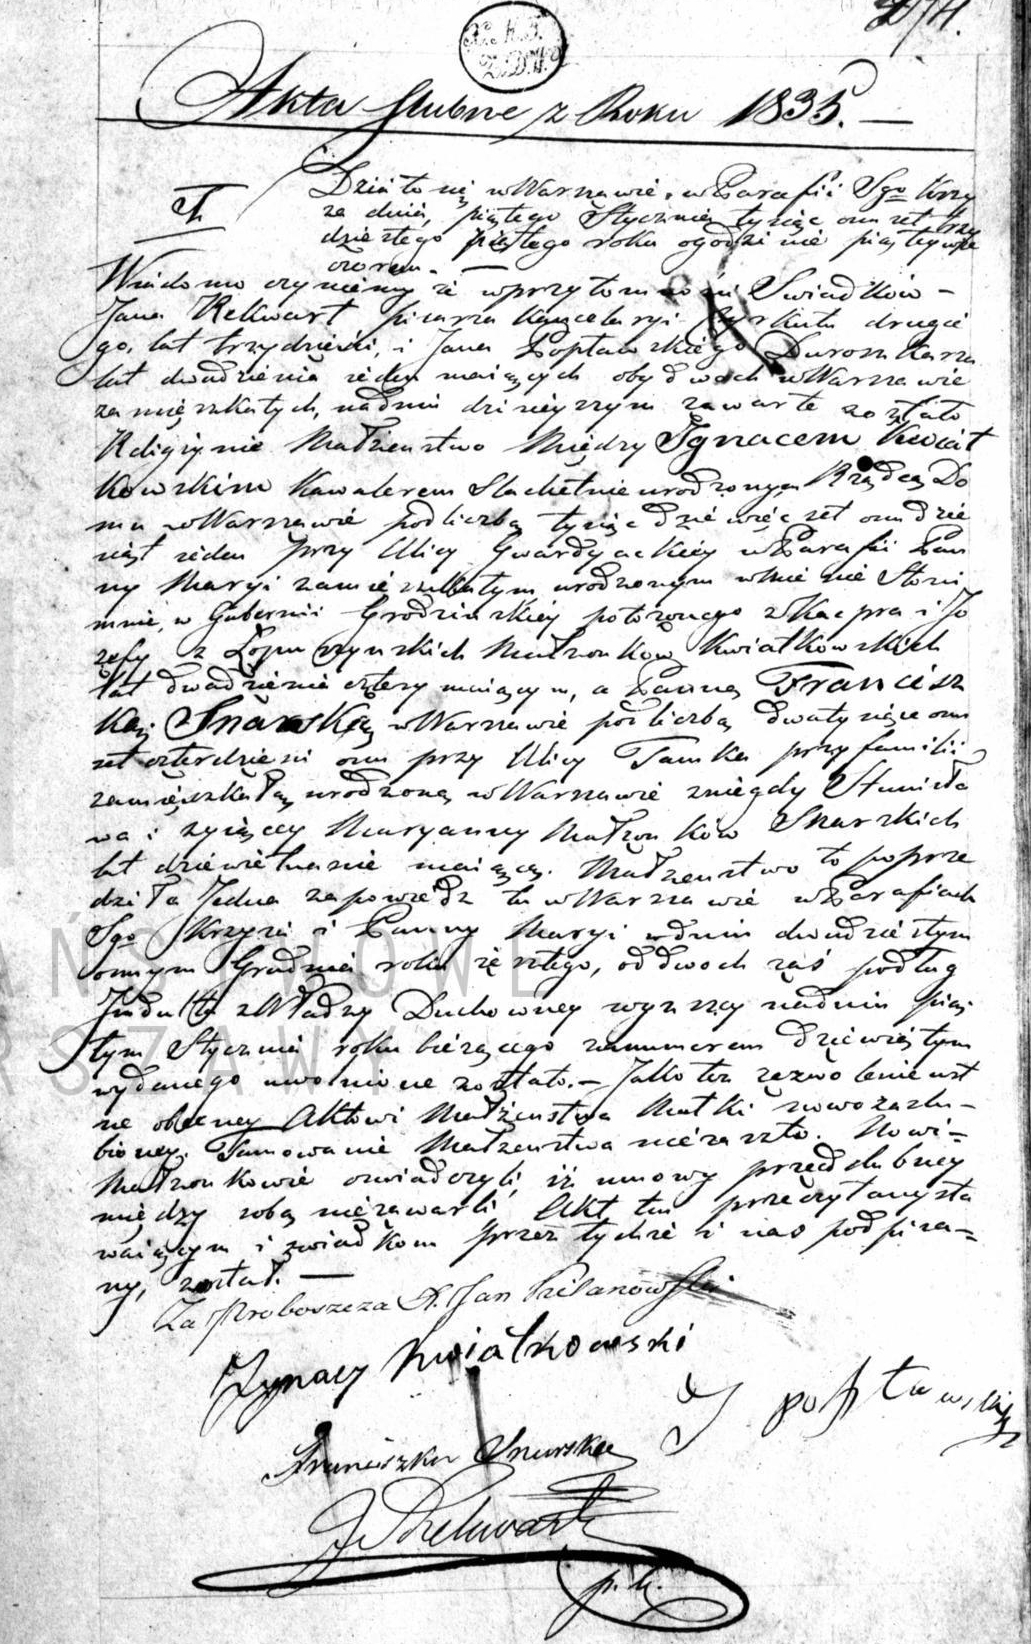 Akta Slubne z Roku 1835. —
1
Działo się w Warszawie w Parafii Sgo Krzy
ża dnia, piątego Stycznia tysiąc osm set trzy
dziestego piątego roku o godzinie piątey wie
czorem. —
Wiadomo czyniemy iż w przytomności Swiadków –
Jana Rekwart pisarza Kancelaryi Cyrkułu drugie
go, lat trzydzieści, i Jana Popławskiego Duroszkarza
lat dwadzieścia ieden maiących obydwoch w Warszawie
zamięszkałych, na dniu dzisieyszym zawarte zostało
Religiynie Małżenstwo Między Ignacem Kwiat
kowskim Kawalerem Slachetnie urodzonym Rządcą Do
mu w Warszawie pod liczbą tysiąc dziewięcset osmdzie
siąt ieden przy Ulicy Gwardyackiey w Parafii Pan
ny Maryi zamieszkałym, urodzonym w mieście Słoni
mnie, w Gubernii Grodzieńskiey położonego z Kacpra i Jo
zefy z Łopuszynskich Małżonkow Kwiatkowskich
lat dwadzieścia cztery maiącym, a Panną Francisz
ką Snarską w Warszawie pod liczbą dwa tysiące osm
set czterdzieści osm przy Ulicy Tamka przy familii
zamięszkałą, urodzoną w Warszawie z niegdy Stanisła
wa i żyiącey Maryanny Małżonków Snarskich
lat dziewietnaście maiącą. Małżenstwo to poprze
dziła Jedna zapowiedz tu w Warszawie w Parafiach
Sgo Krzyża i Panny Maryi w dniu dwudziestym
osmym Grudnia roku zeszłego, od dwoch zaś podług
Indultu z Władzy Duchowney wyższey na dniu pią
tym Stycznia roku bieżącego za numerem dziewiętym
wydanego uwolnione zostało. – Jako też zezwolenie ust
ne obecney Aktowi Małżenstwa Matki nowozaslu–
bioney. Tamowanie Małżenstwa nie zaszło. Nowi=
Małżonkowie oświadczyli, iż umowy przedslubney
między sobą nie zawarli Akt ten przeczytany sta
waiącym i swiadkom przez tychże i nas podpisa=
ny, został. —
Za Proboszcza X. Jan
Ignacy Kwiatkowski
J popławski
Franciszka Snarska
J. Rekwart
p. k.